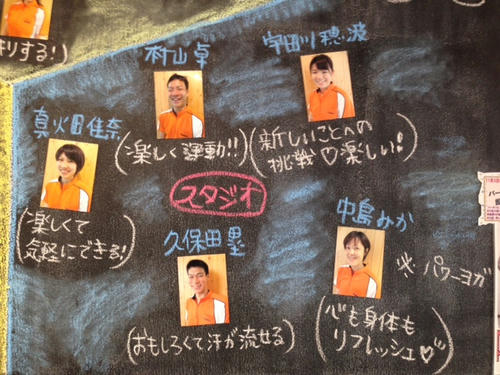 キリする!)
村山 卓
(楽しく運動!!)
宇田川 穂波
(新しいことへの
挑戦♡楽しい!)
真火田佳奈
(楽しくて
気軽にできる!)
スタジオ
久保田 塁
(おもしろくて汗が流せる)
中島みか
※パワーヨガ
(心も身体も
リフレッシュ♡)